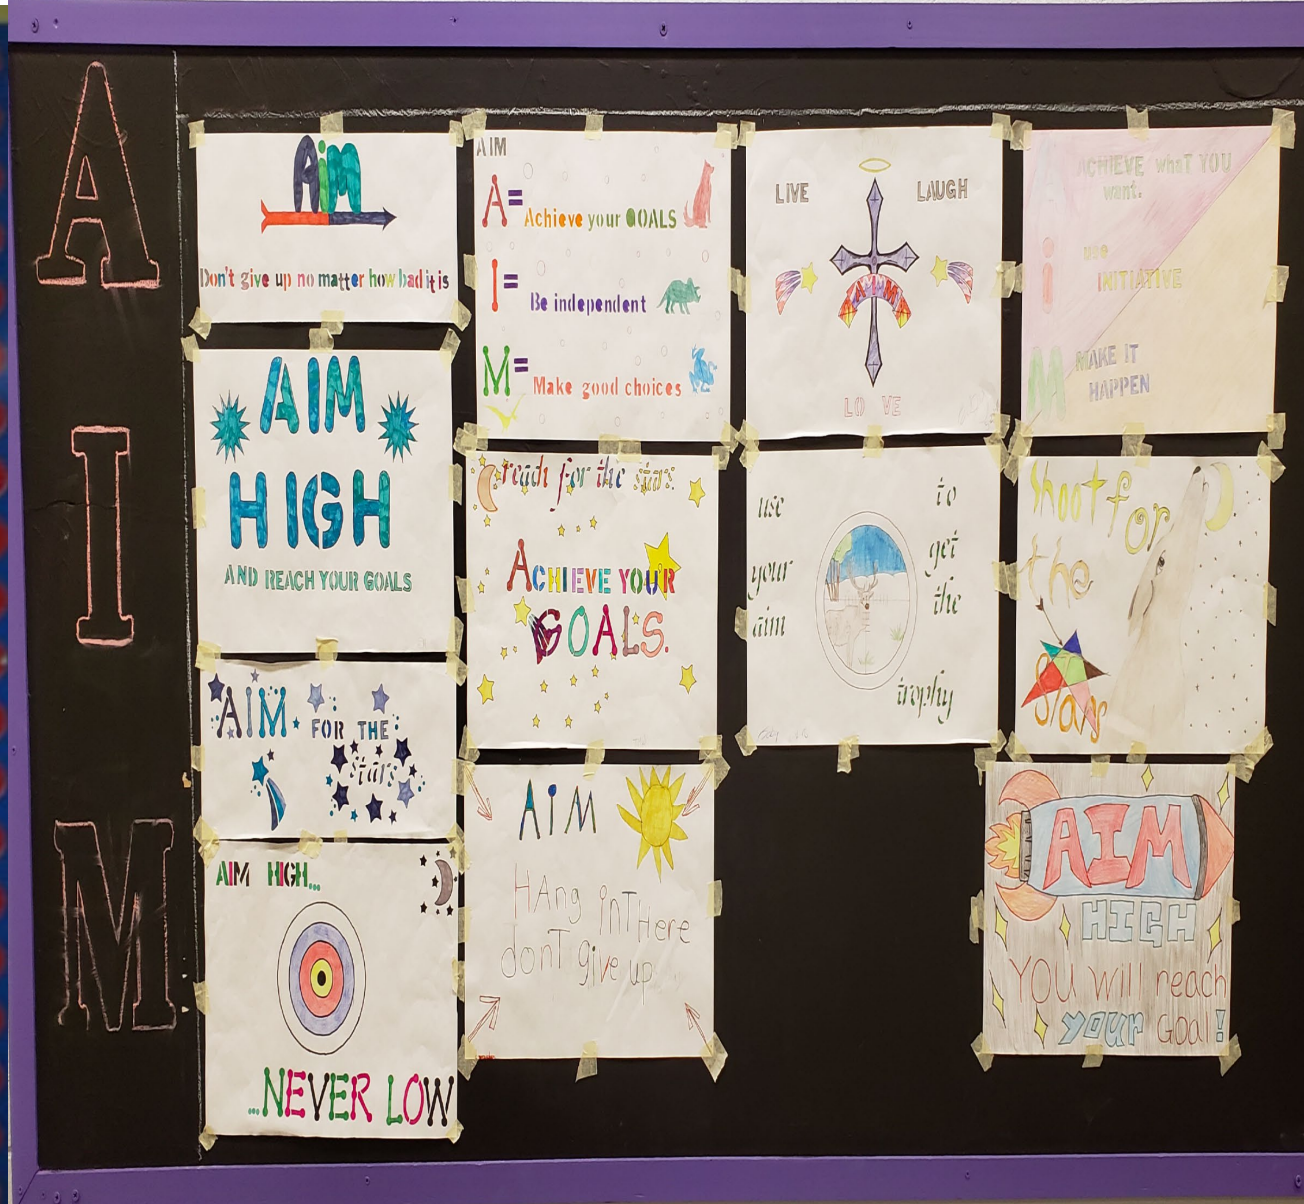 A
I
M
AiM
Don't give up no matter how bad it is
AIM
HIGH
AND REACH YOUR GOALS
AIM FOR THE
stars
AIM HIGH...
...NEVER LOW
AIM
A= Achieve your GOALS
I= Be independent
M= Make good choices
reach for the stars
ACHIEVE YOUR
GOALS.
AiM
HAng inTHere
donT give up
LIVE LAUGH
AIM
LO VE
use to
your get
aim the
trophy
A ACHIEVE whaT YOU
want.
i use
INITIATIVE
M MAKE IT
HAPPEN
Shoot for
the
Stars
AIM
HIGH
YOU will reach
your Goal!